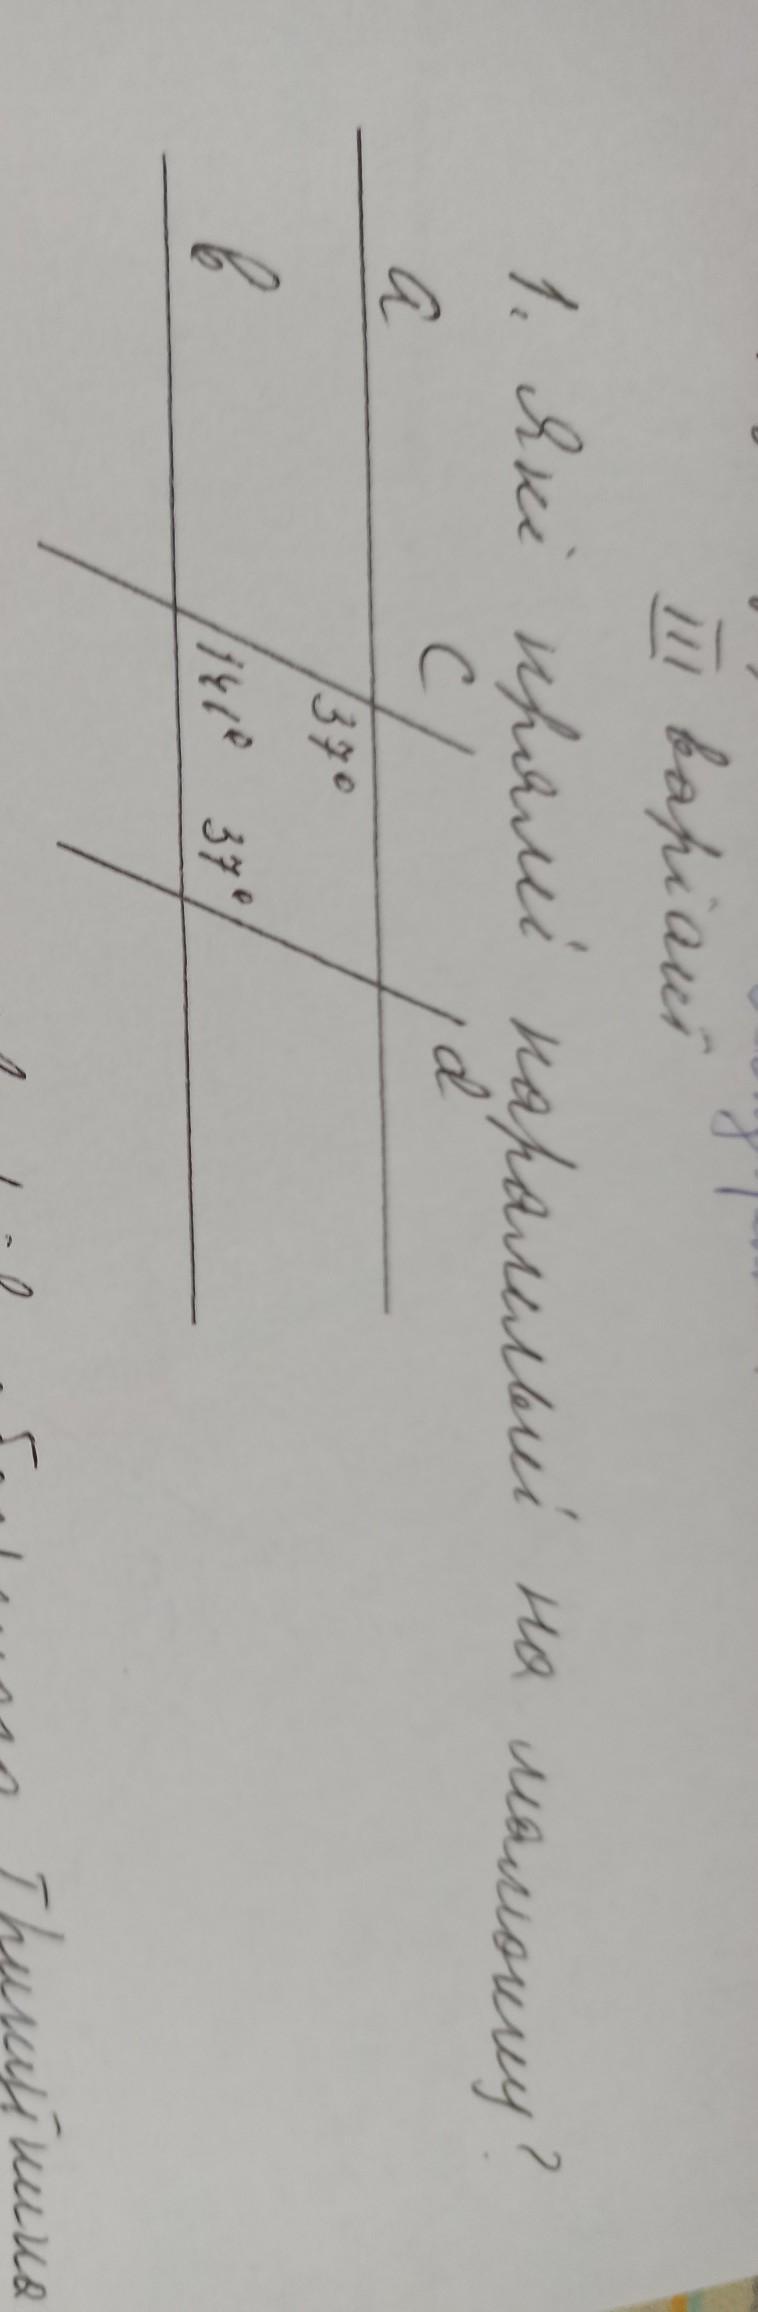 III варіант
1. Які прямі паралельні на малюнку?
a
c
d
37°
b
141°
37°